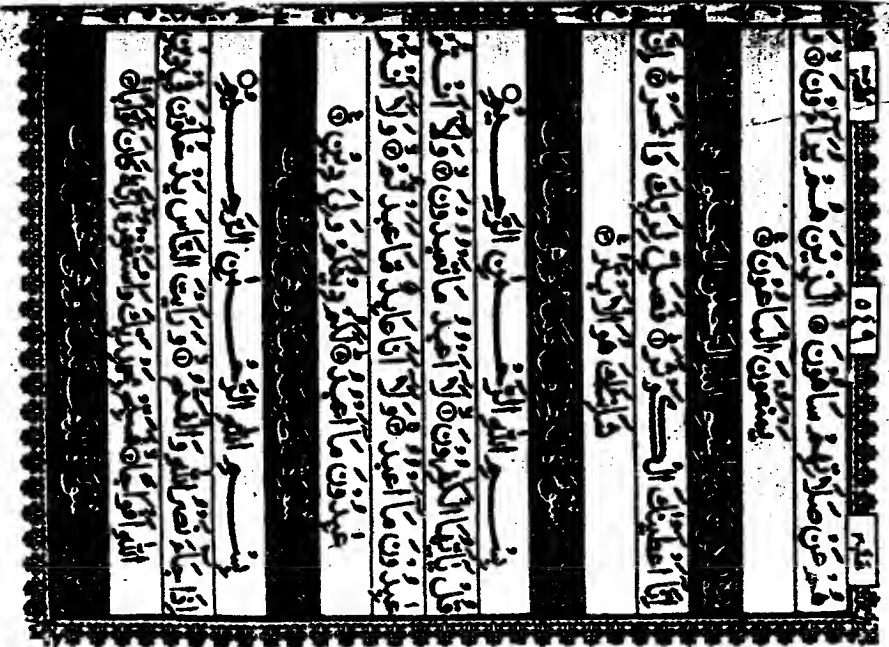 ٥٤٩
هُمْ عَنْ صَلَاتِهِمْ سَاهُونَ ۝٥ الَّذِينَ هُمْ يُرَآءُونَ ۝٦ وَ
يَمْنَعُونَ الْمَاعُونَ ۝٧
بسم الله الرحمن الرحيم
إِنَّا أَعْطَيْنٰكَ الْكَوْثَرَ ۝١ فَصَلِّ لِرَبِّكَ وَانْحَرْ ۝٢ إِنَّ
شَانِئَكَ هُوَ الْأَبْتَرُ ۝٣
بِسْمِ اللّٰهِ الرَّحْمٰنِ الرَّحِيمِ
قُلْ يٰٓأَيُّهَا الْكٰفِرُونَ ۝١ لَآ أَعْبُدُ مَا تَعْبُدُونَ ۝٢ وَلَآ أَنْتُمْ
عٰبِدُونَ مَآ أَعْبُدُ ۝٣ وَلَآ أَنَا عَابِدٌ مَا عَبَدْتُمْ ۝٤ وَلَآ أَنْتُمْ
عٰبِدُونَ مَآ أَعْبُدُ ۝٥ لَكُمْ دِينُكُمْ وَلِيَ دِينِ ۝٦
بِسْمِ اللّٰهِ الرَّحْمٰنِ الرَّحِيمِ
إِذَا جَآءَ نَصْرُ اللّٰهِ وَالْفَتْحُ ۝١ وَرَأَيْتَ النَّاسَ يَدْخُلُونَ فِي دِينِ
اللّٰهِ أَفْوَاجًا ۝٢ فَسَبِّحْ بِحَمْدِ رَبِّكَ وَاسْتَغْفِرْهُ إِنَّهُ كَانَ تَوَّابًا ۝٣